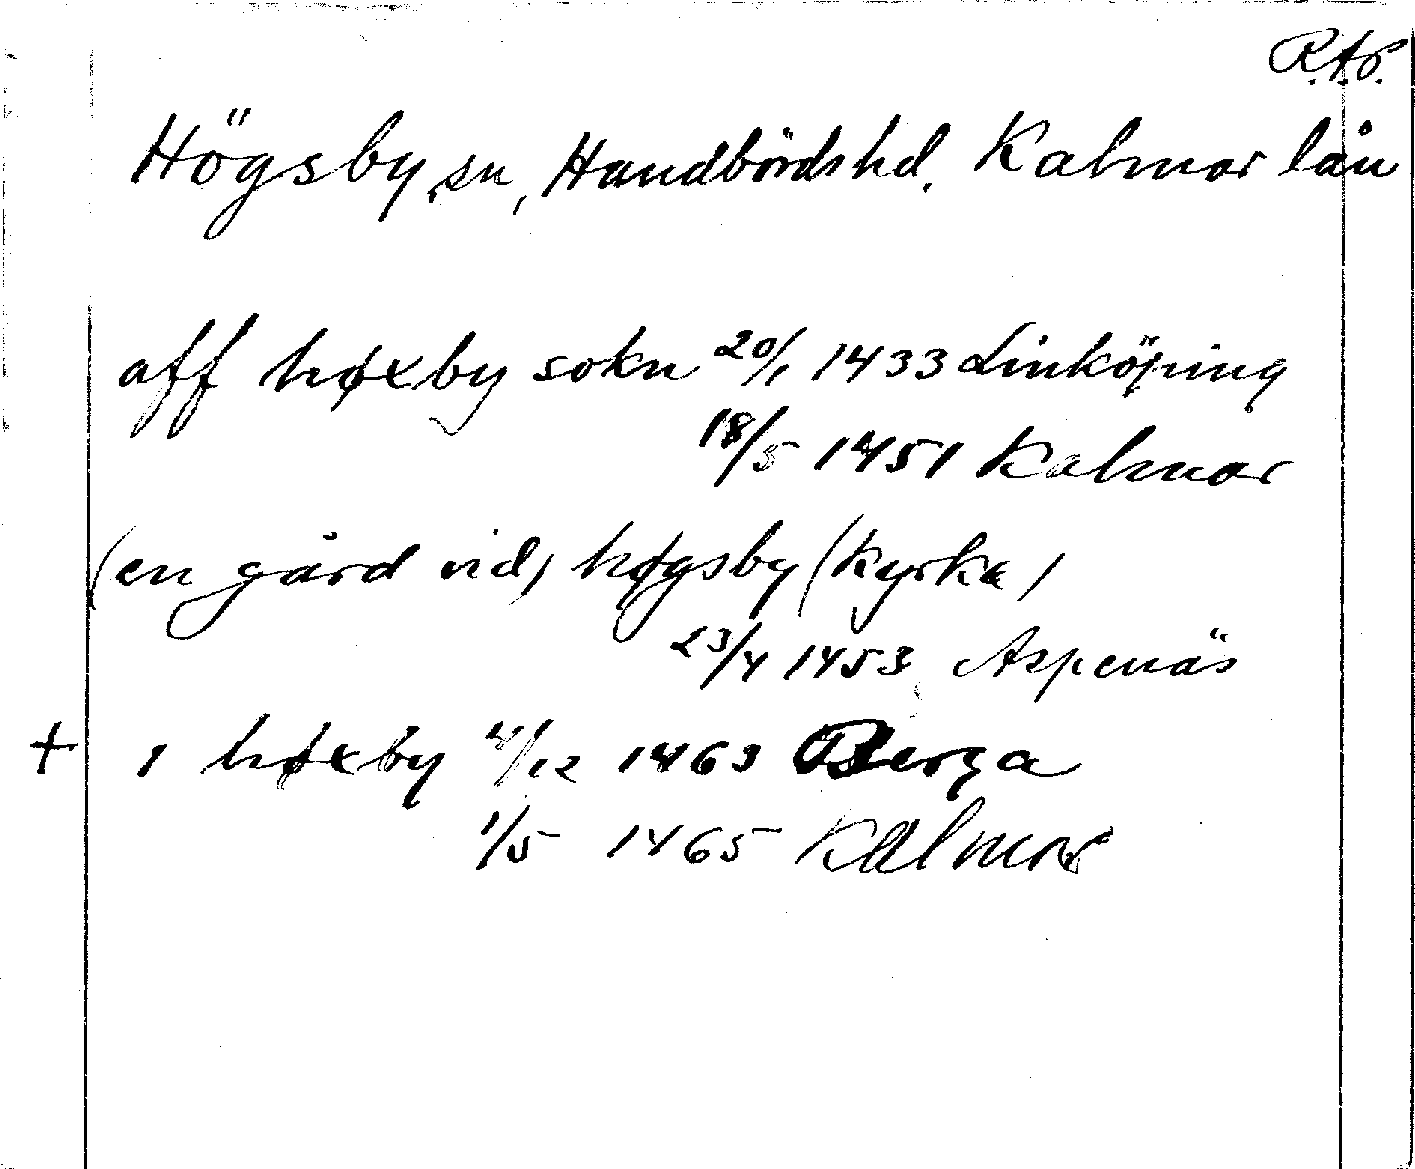 R.A.P.
Högsby sn, Handbördshd. Kalmar län
aff høxby sokn 20/1 1433 Linköping
18/5 1451 Kalmar
(en gård vid) høgsby (kyrka)
23/4 1453 Aspenäs
+ i høxby 4/12 1463 Berga
1/5 1465 Kalmar